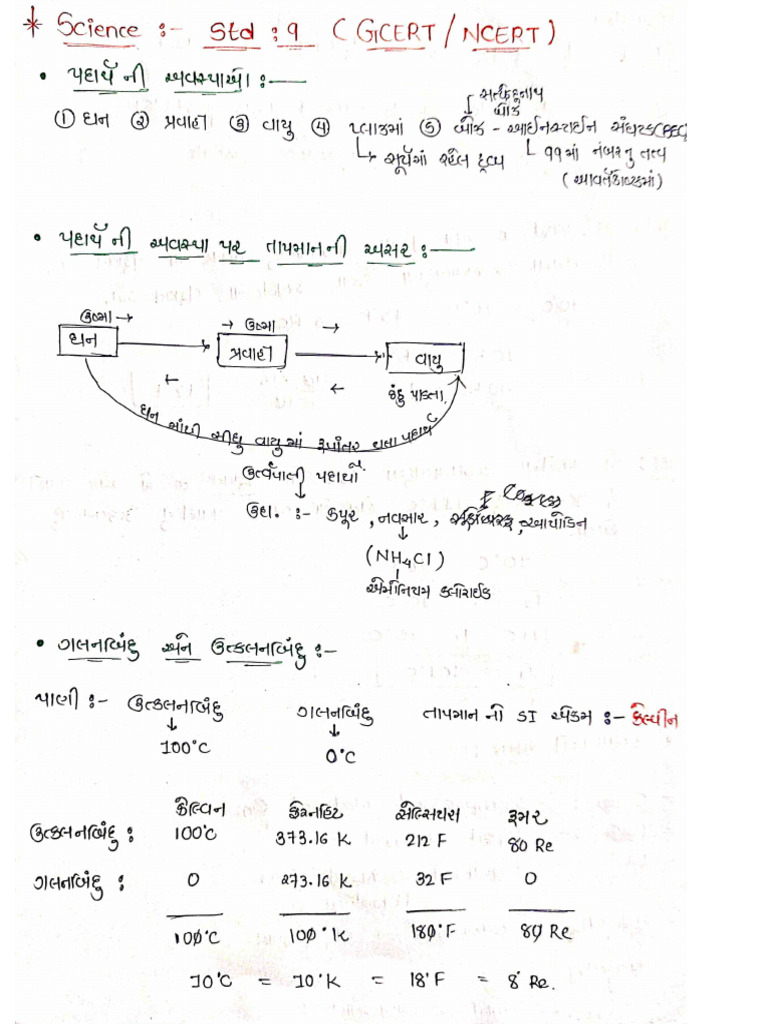 * Science :- Std : 9 (GCERT/NCERT)
• પદાર્થ ની અવસ્થાઓ :-
① ઘન ② પ્રવાહી ③ વાયુ ④ પ્લાઝમાં ⑤ બોઝ - આઈનસ્ટાઈન સંઘટક(BEC)
સત્યેન્દ્રનાથ બોઝ
↳ સૂર્યમાં રહેલ દ્રવ્ય
૧૧માં નંબરનુ તત્વ
(આવર્તકોષ્ટકમાં)
• પદાર્થ ની અવસ્થા પર તાપમાનની અસર :-
ઉષ્મા → → ઉષ્મા →
ઘન પ્રવાહી વાયુ
← ← ઠંડુ પાડતા
ઘન માંથી સીધુ વાયુમાં રૂપાંતર થતા પદાર્થ
ઉર્ધ્વપાતી પદાર્થો
ઉદા. :- કપૂર , નવસાર , આયોડિન
(NH₄Cl)
એમોનિયમ ક્લોરાઈડ
• ગલનબિંદુ અને ઉત્કલનબિંદુ :-
પાણી :- ઉત્કલનબિંદુ ગલનબિંદુ તાપમાન નો SI એકમ :- કેલ્વીન
100°C 0°C
કેલ્વિન ફેરનહિટ સેલ્સિયસ રૂમર
ઉત્કલનબિંદુ : 100°C 373.16 K 212 F 80 Re
ગલનબિંદુ : 0 273.16 K 32 F 0
100°C 100°K 180°F 80 Re
10°C = 10°K = 18°F = 8° Re.